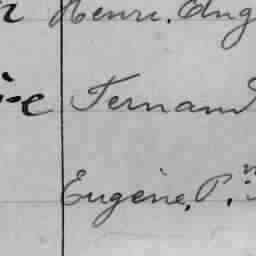 Henri. Aug
Fernand
Eugène. P.